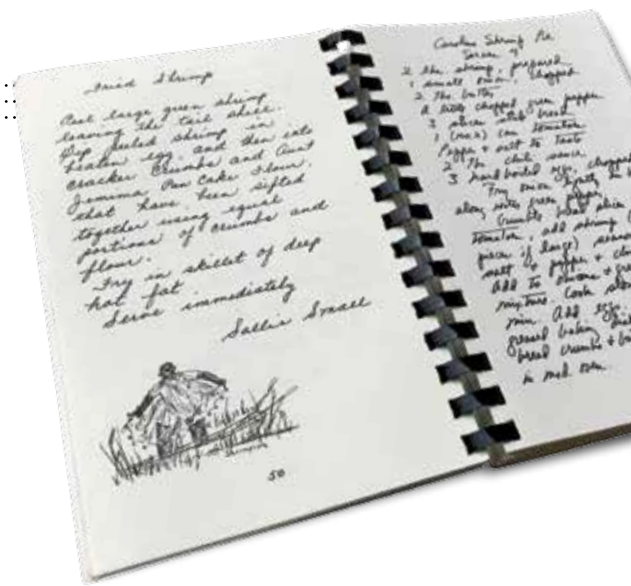 Fried Shrimp
Peel large green shrimp
leaving the tail shell.
Dip peeled shrimp in
beaten egg and then into
cracker crumbs and Aunt
Jemima Pan Cake flour.
that have been sifted
together using equal
portions of crumbs and
flour.
Fry in skillet of deep
hot fat
Serve immediately
Sallie Small
50
Carolina Shrimp Pie
Serves 4
2 lbs. shrimp, prepared
1 small onion, chopped
2 Tbs. butter
A little chopped green pepper
3 slices bread
1 (No. 2) can tomatoes
Pepper + salt to taste
2 Tbs. chili sauce
3 hard boiled eggs, chopped
Fry onion lightly in
along with green pepper.
Crumble bread
tomatoes, add shrimp
piece if large) season
salt + pepper +
Add to onion +
mixture. Cook
min. Add eggs.
greased baking
bread crumbs +
in med. oven.